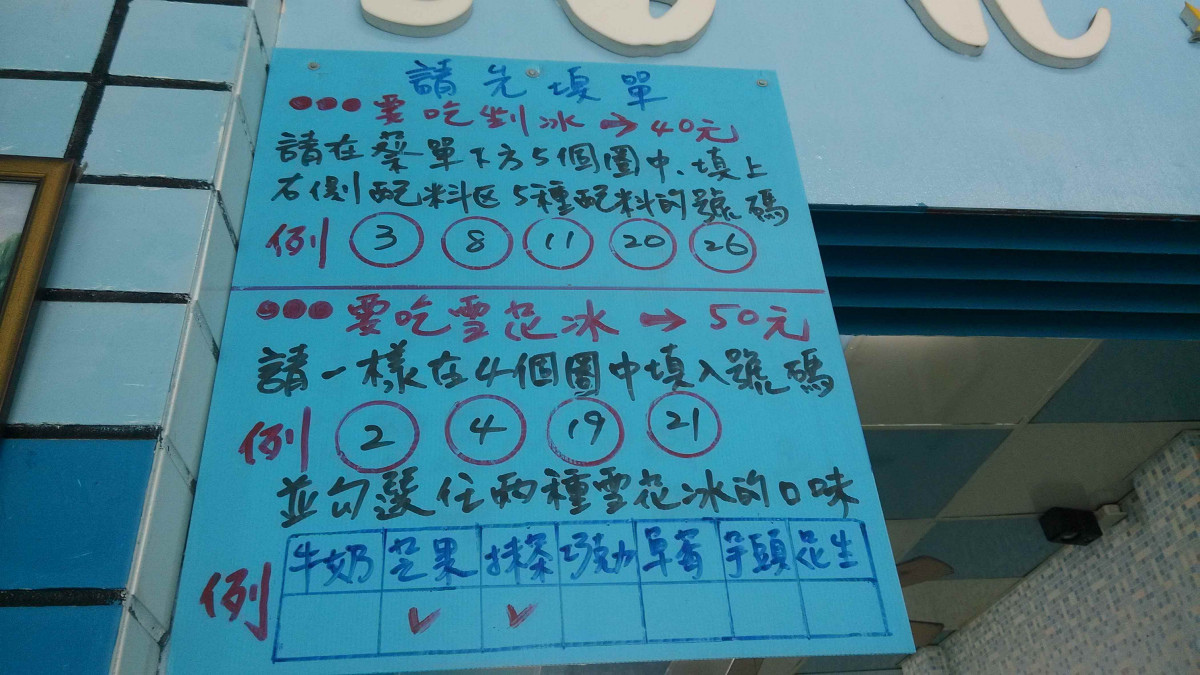 請先填單
要吃剉冰→40元
請在菜單下方5個圈中、填上
右側配料区5種配料的號碼
例 3 8 11 20 26
要吃雪花冰→50元
請一樣在4個圈中填入號碼
例 2 4 19 21
並勾選任兩種雪花冰的口味
牛奶 芒果 抹茶 巧克力 草莓 芋頭 花生
例 ✓ ✓